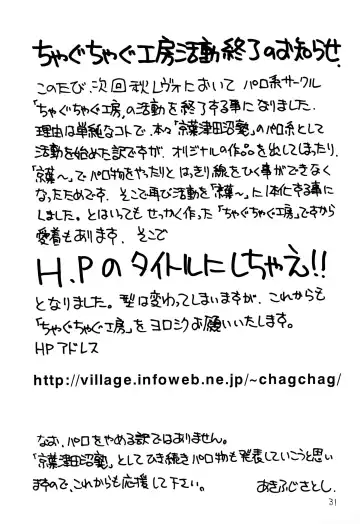 ちゃぐちゃぐ工房活動終了のお知らせ.
このたび、次回秋レヴォにおいて パロ系サークル
「ちゃぐちゃぐ工房」の活動を終了する事になりました.
理由は単純なコトで、本々「京葉津田沼塾」のパロ系として
活動を始めた訳ですが、オリジナルの作品を出してしまったり、
「京葉〜」でパロ物をやったりと はっきり線をひく事ができなく
なったためです. そこで再び活動を「京葉〜」に一本化する事に
しました. とはいっても せっかく作った「ちゃぐちゃぐ工房」ですから
愛着もあります. そこで
H.Pのタイトルにしちゃえ!!
となりました. 型は変わってしまいますが、これからも
「ちゃぐちゃぐ工房」をヨロシクお願いいたします。
HPアドレス
http://village.infoweb.ne.jp/~chagchag/
なお、パロをやめる訳ではありません。
「京葉津田沼塾」としてひき続きパロ物も発表していこうと思い
ますので、これからも応援して下さい。 あきふじさとし.
31